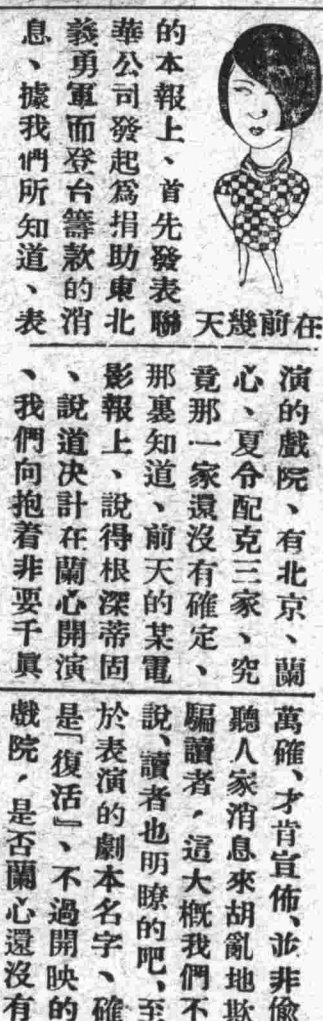 在前幾天
的本報上、首先發表聯
華公司發起爲捐助東北
義勇軍而登台籌款的消
息、據我們所知道、表
演的戲院、有北京、蘭
心、夏令配克三家、究
竟那一家還沒有確定、
那裏知道、前天的某電
影報上、說得根深蒂固
、說道决計在蘭心開演
、我們向抱着非要千眞
萬確、才肯宣佈、並非偷
聽人家消息來胡亂地欺
騙讀者，這大概我們不
說、讀者也明瞭的吧、至
於表演的劇本名字、確
是『復活』、不過開映的
戲院，是否蘭心還沒有